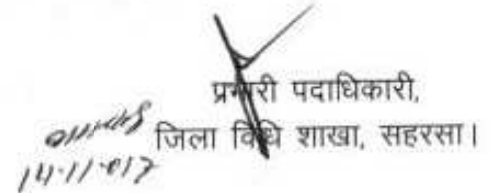 प्रभारी पदाधिकारी,
जिला विधि शाखा, सहरसा।
14.11.017